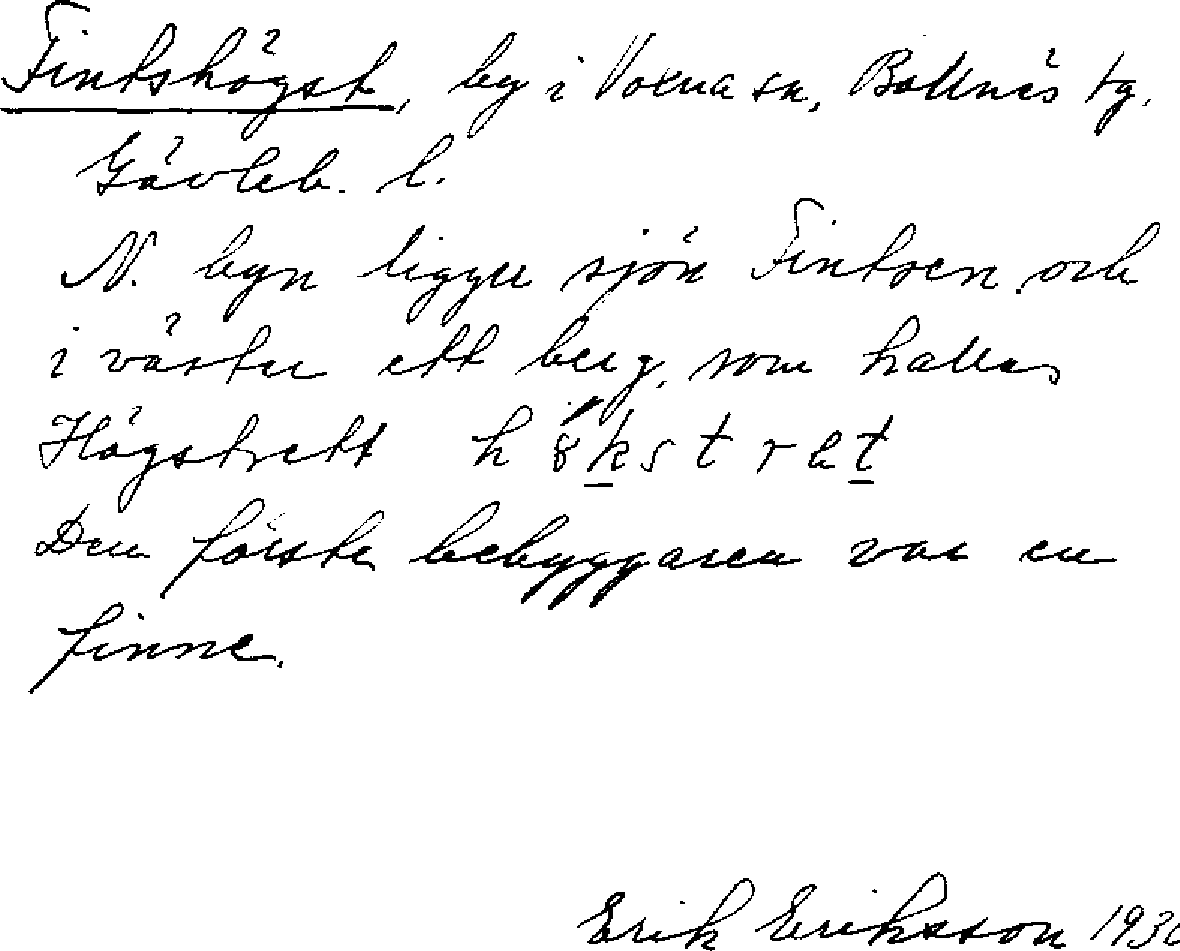 Fintshögst, by i Voxna sn, Bollnäs tg.
Gävleb. l.
N. byn ligger sjön Fintsen och
i väster ett berg, som kallas
Högstrett h ö́ k s t r e t
Den förste bebyggaren var en
finne.
Erik Eriksson 193